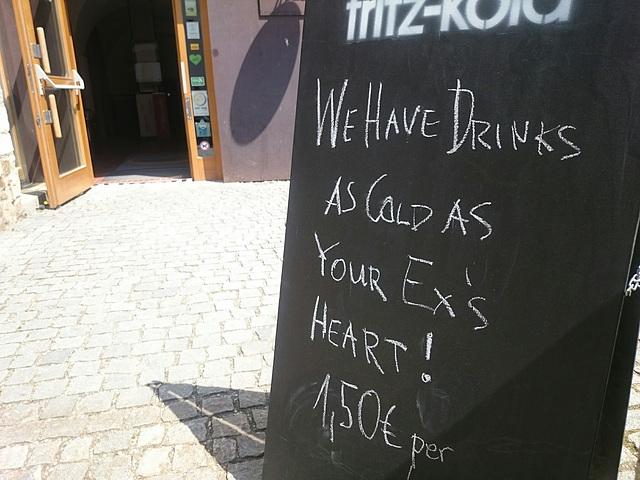 fritz-kola
WE HAVE DRINKS
AS COLD AS
YOUR EX'S
HEART!
1,50€ per